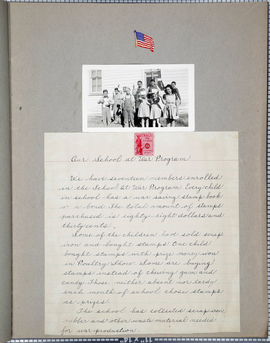 Our School at War Program
We have seventeen members enrolled
in the School at War Program. Every child
in school has a war saving stamp book
or a bond. The total amount of stamps
purchased is eighty eight dollars and
thirty cents.
Some of the children have sold scrap
iron and bought stamps. One child
bought stamps with prize money won
in Poultry Show. Some are buying
stamps instead of chewing gum and
candy. Those neither absent nor tardy
each month of school chose stamps
as prizes.
The school has collected scrap iron,
rubber and other waste material needed
for war production.